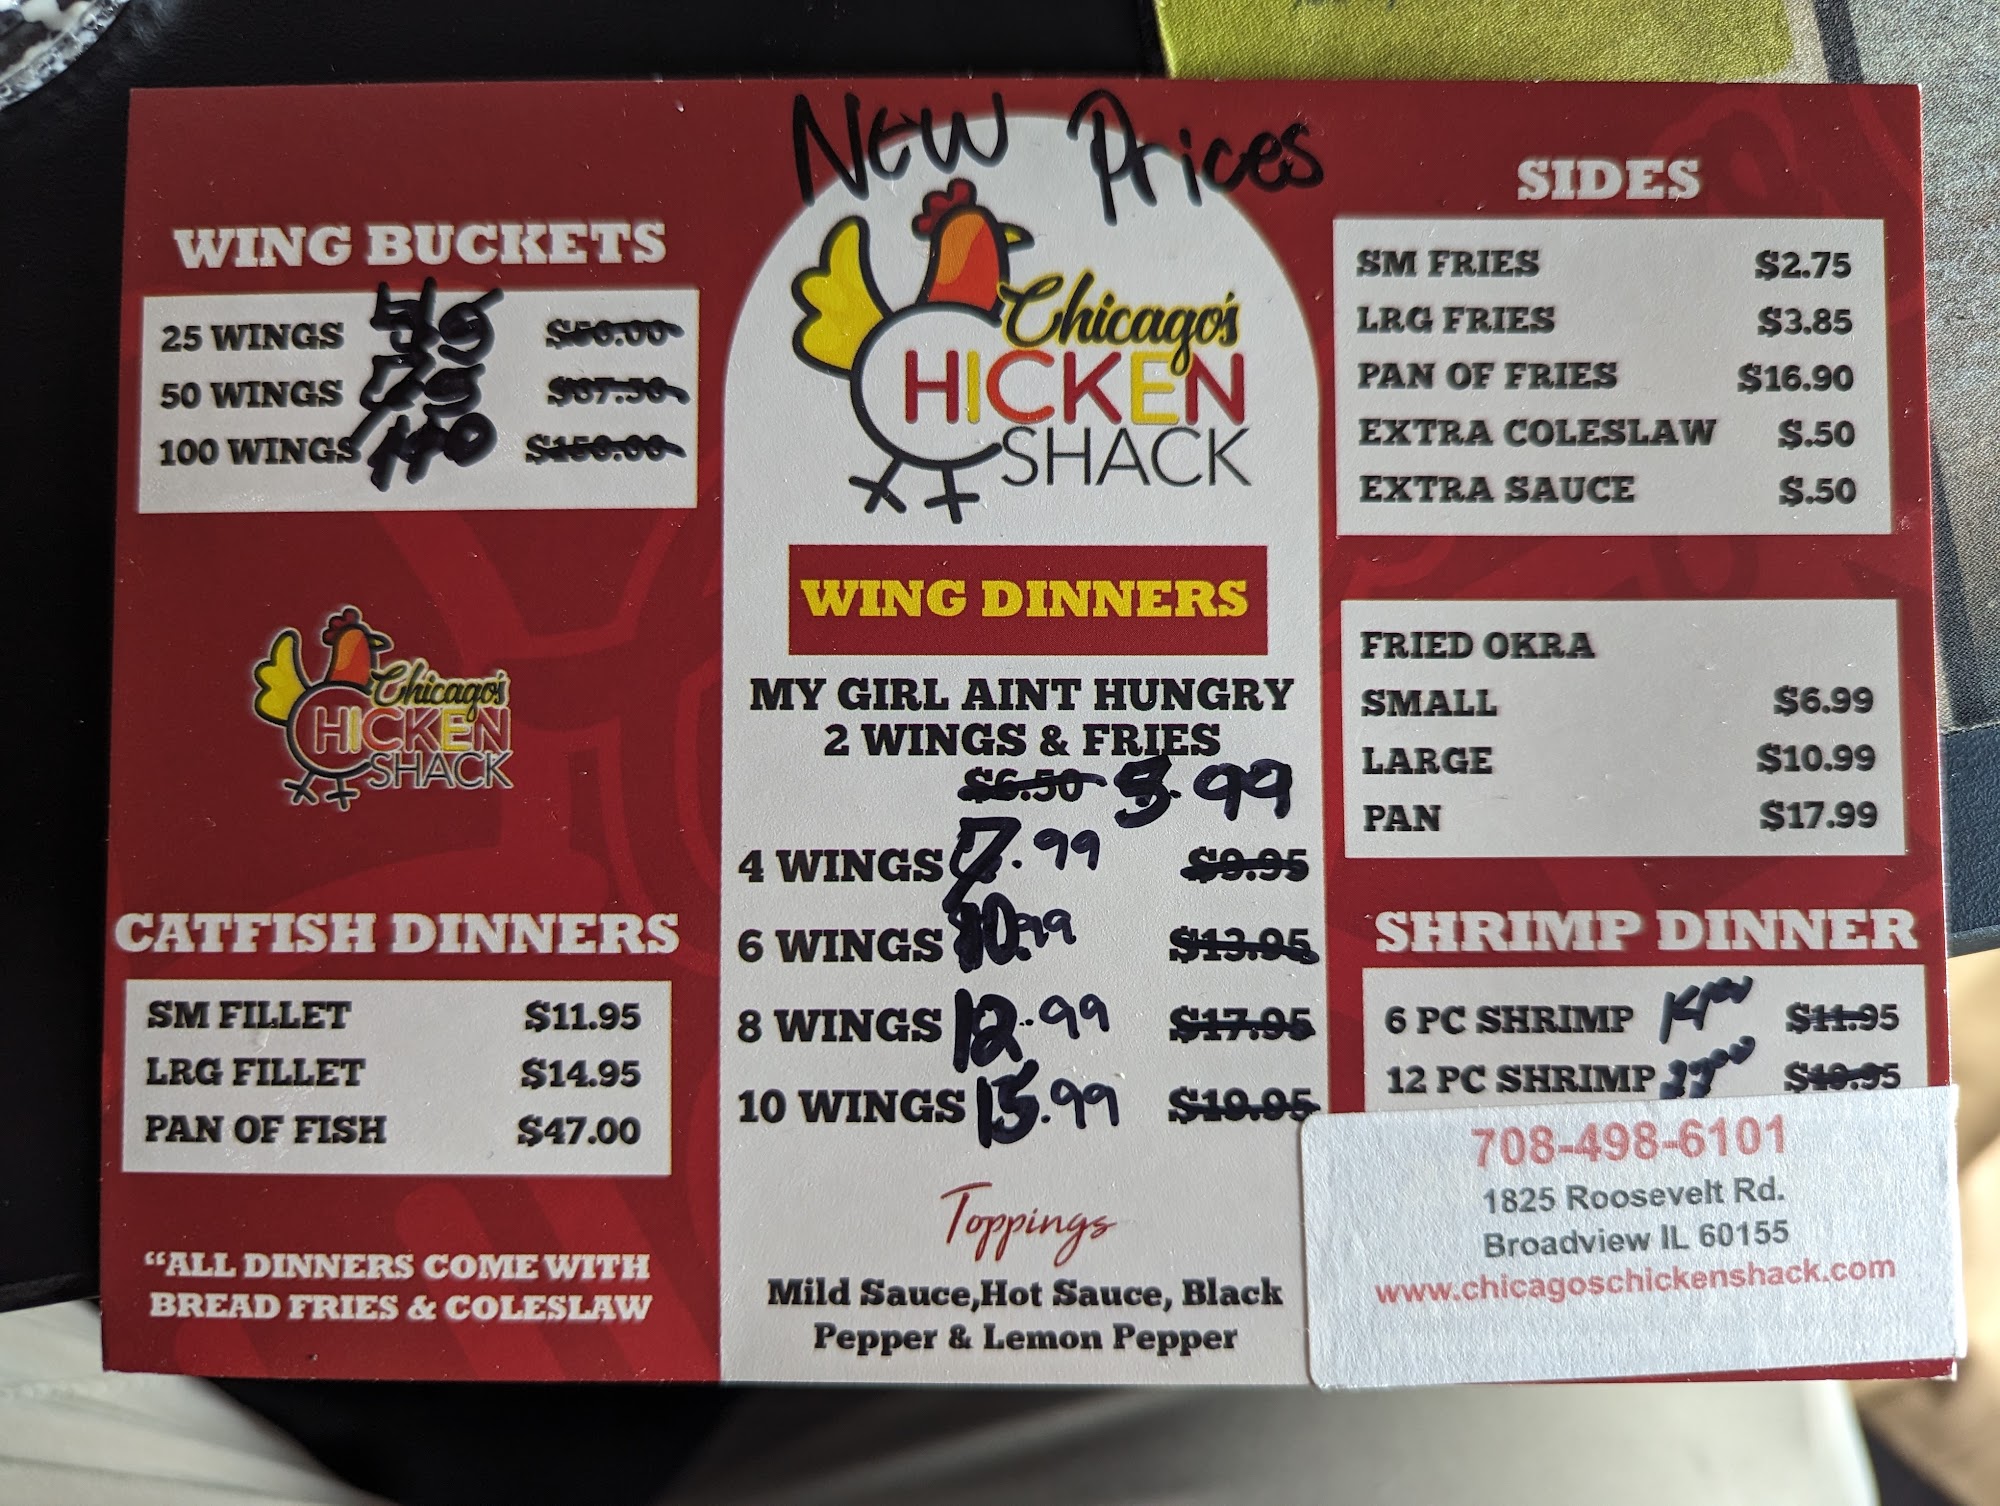 New Prices
WING BUCKETS
25 WINGS
50 WINGS
100 WINGS 140 $150.00
Chicago's
CHICKEN
SHACK
CATFISH DINNERS
SM FILLET $11.95
LRG FILLET $14.95
PAN OF FISH $47.00
“ALL DINNERS COME WITH
BREAD FRIES & COLESLAW
Chicago's
CHICKEN
SHACK
WING DINNERS
MY GIRL AINT HUNGRY
2 WINGS & FRIES
$6.50 5.99
4 WINGS 7.99 $9.95
6 WINGS 10.99 $13.95
8 WINGS 12.99 $17.95
10 WINGS 15.99 $19.95
Toppings
Mild Sauce,Hot Sauce, Black
Pepper & Lemon Pepper
SIDES
SM FRIES $2.75
LRG FRIES $3.85
PAN OF FRIES $16.90
EXTRA COLESLAW $.50
EXTRA SAUCE $.50
FRIED OKRA
SMALL $6.99
LARGE $10.99
PAN $17.99
SHRIMP DINNER
6 PC SHRIMP $11.95
12 PC SHRIMP $19.95
708-498-6101
1825 Roosevelt Rd.
Broadview IL 60155
www.chicagoschickenshack.com